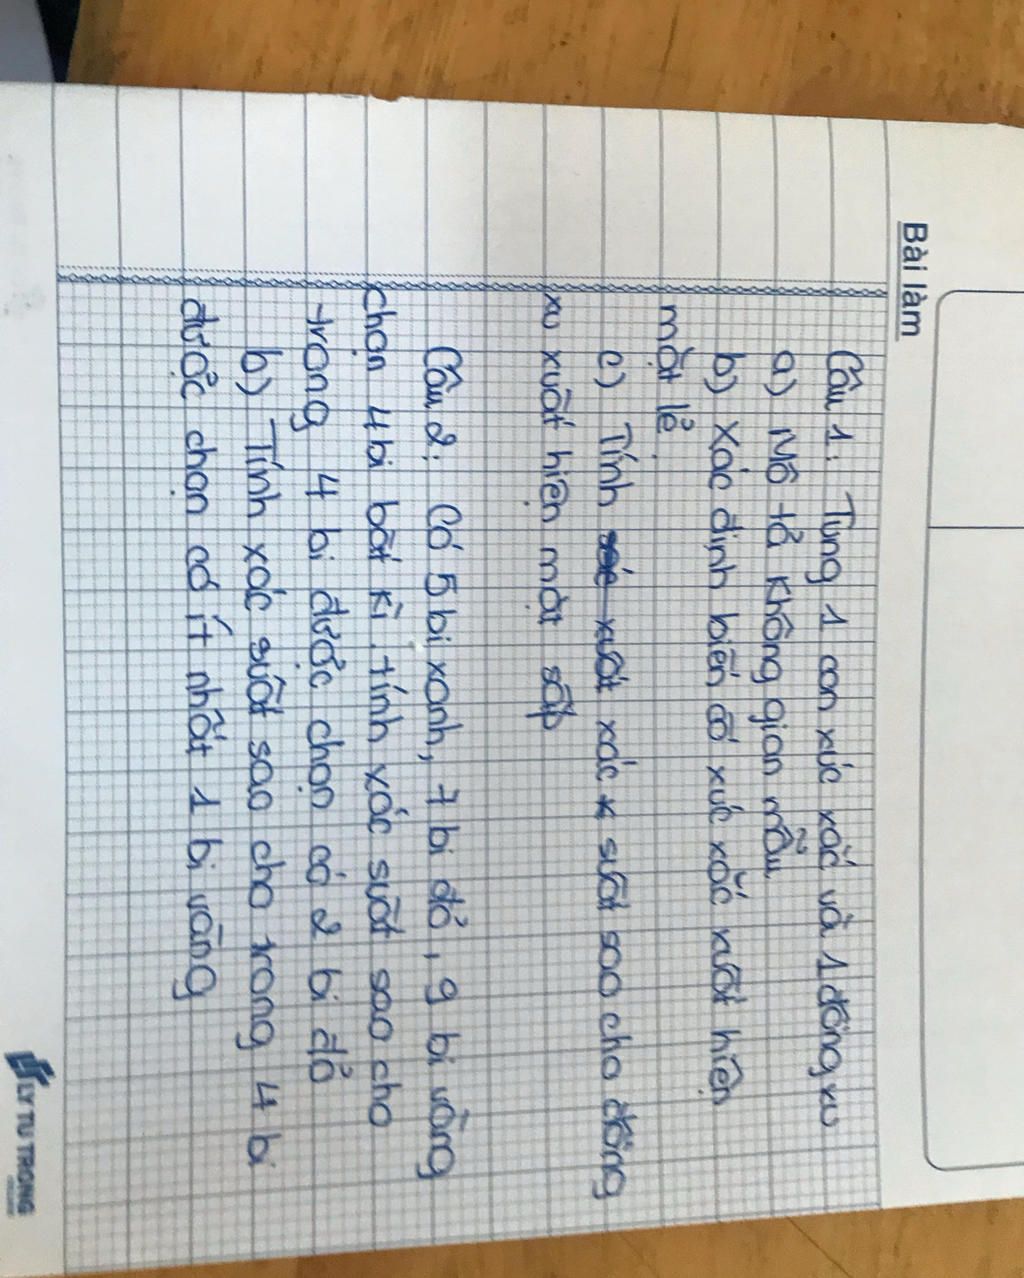 Bài làm
Câu 1: Tung 1 con xúc xắc và 1 đồng xu
a) Mô tả không gian mẫu
b) Xác định biến cố xúc xắc xuất hiện
mặt lẻ.
c) Tính xác suất sao cho đồng
xu xuất hiện mặt sấp
Câu 2: Có 5 bi xanh, 7 bi đỏ, 9 bi vàng
chọn 4 bi bất kì. tính xác suất sao cho
trong 4 bi được chọn có 2 bi đỏ
b) Tính xác suất sao cho trong 4 bi
được chọn có ít nhất 1 bi vàng
LY TU TRONG